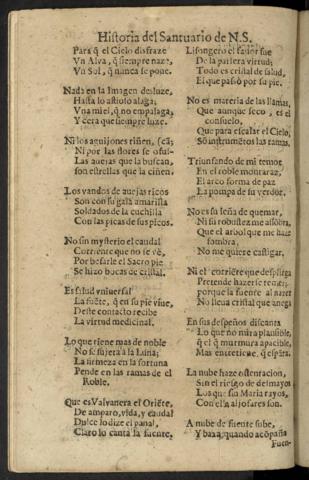 Historia del Santuario de N.S.
Para q̃ el Cielo disfraze
Vn Alva, q̃ siempre naze,
Vn Sol, q̃ nunca se pone.
Nada en la Imagen desluze,
Hasta lo astioso alaga;
Vna miel, q̃ no empalaga;
Y cera que siempre luze.
Ni los aguijones riñen,
Ni por las flores se
Las auejas que la buscan,
son estrellas que la ciñen.
Los vandos de auejas ricos
Son con su gala amarilla
Soldados de la cuchilla
Con las picas de sus picos.
No sin mysterio el caudal
Corriente que no se vè,
Por besarle el Sacro pie
Se hizo bocas de cristal.
Es salud vniuersal
La fuẽte, q̃ en su pie viue,
Deste contacto recibe
La virtud medicinal.
Lo que tiene mas de noble
No se sujeta à la Luna;
La firmeza en la fortuna
Pende en las ramas de el
Roble.
Que es Valvanera el Oriẽte,
De amparo, vida, y caudal
Dulce lo dize el panal,
Claro lo canta la fuente.
Lisongero el fauor fue
De la parlera virtud;
Todo es cristal de salud,
El que passò por su pie.
No es materia de las llamas,
Que aunque seco, es el
consuelo,
Que para escalar el Cielo,
Sõ instrumẽtos las ramas.
Triunfando de mi temor
En el roble montaraz,
El arco forma de paz
La pompa de su verdor.
No es su leña de quemar,
Ni su robustez me assõbra,
Que el arbol que me haze
sombra,
No me quiere castigar.
Ni el corriẽre que despliega
Pretende hazerse temer;
porque la fuente al nacer
No lleua cristal que anega
En sus despeños discanta
Lo que no mira plausible,
q̃ el q̃ murmura apacible,
Mas entretiene q̃ espãta.
La nube haze ostentacion,
Sin el riesgo de desmayos
Los que sin Maria rayos,
Con ella aljofares son.
A nube de fuente sube,
Y baxa quando acõpaña
Fuen-